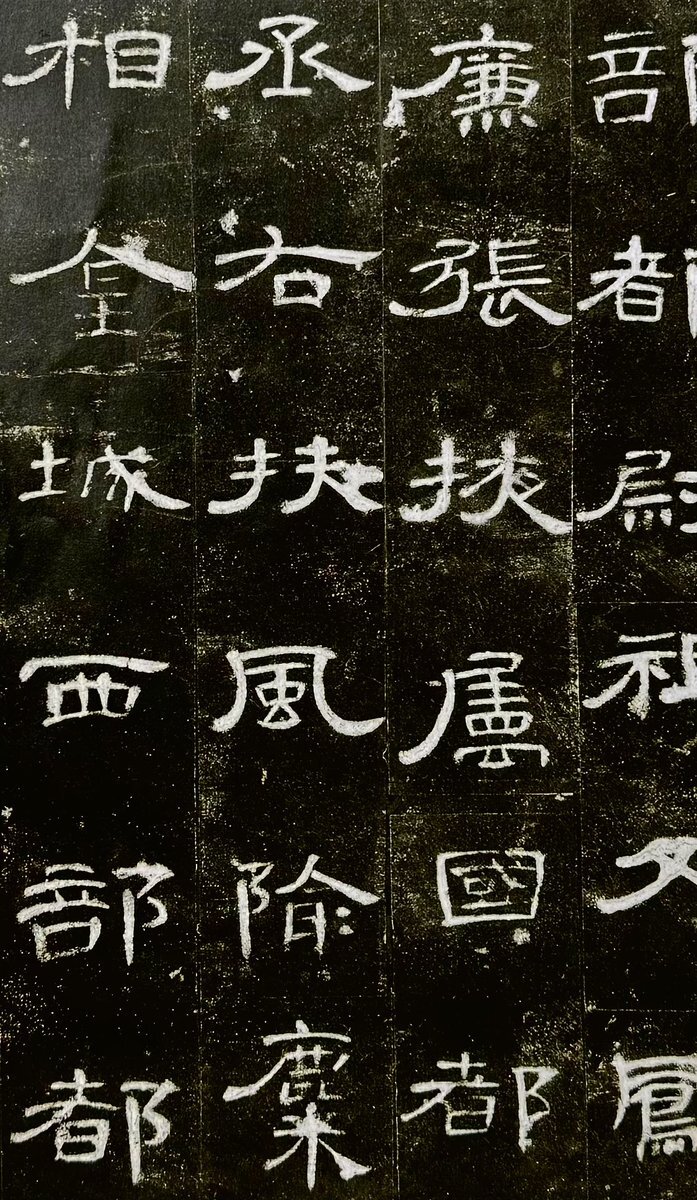 部都尉祖父鳳
廉張掖屬國都
丞右扶風隃麋
相金城西部都